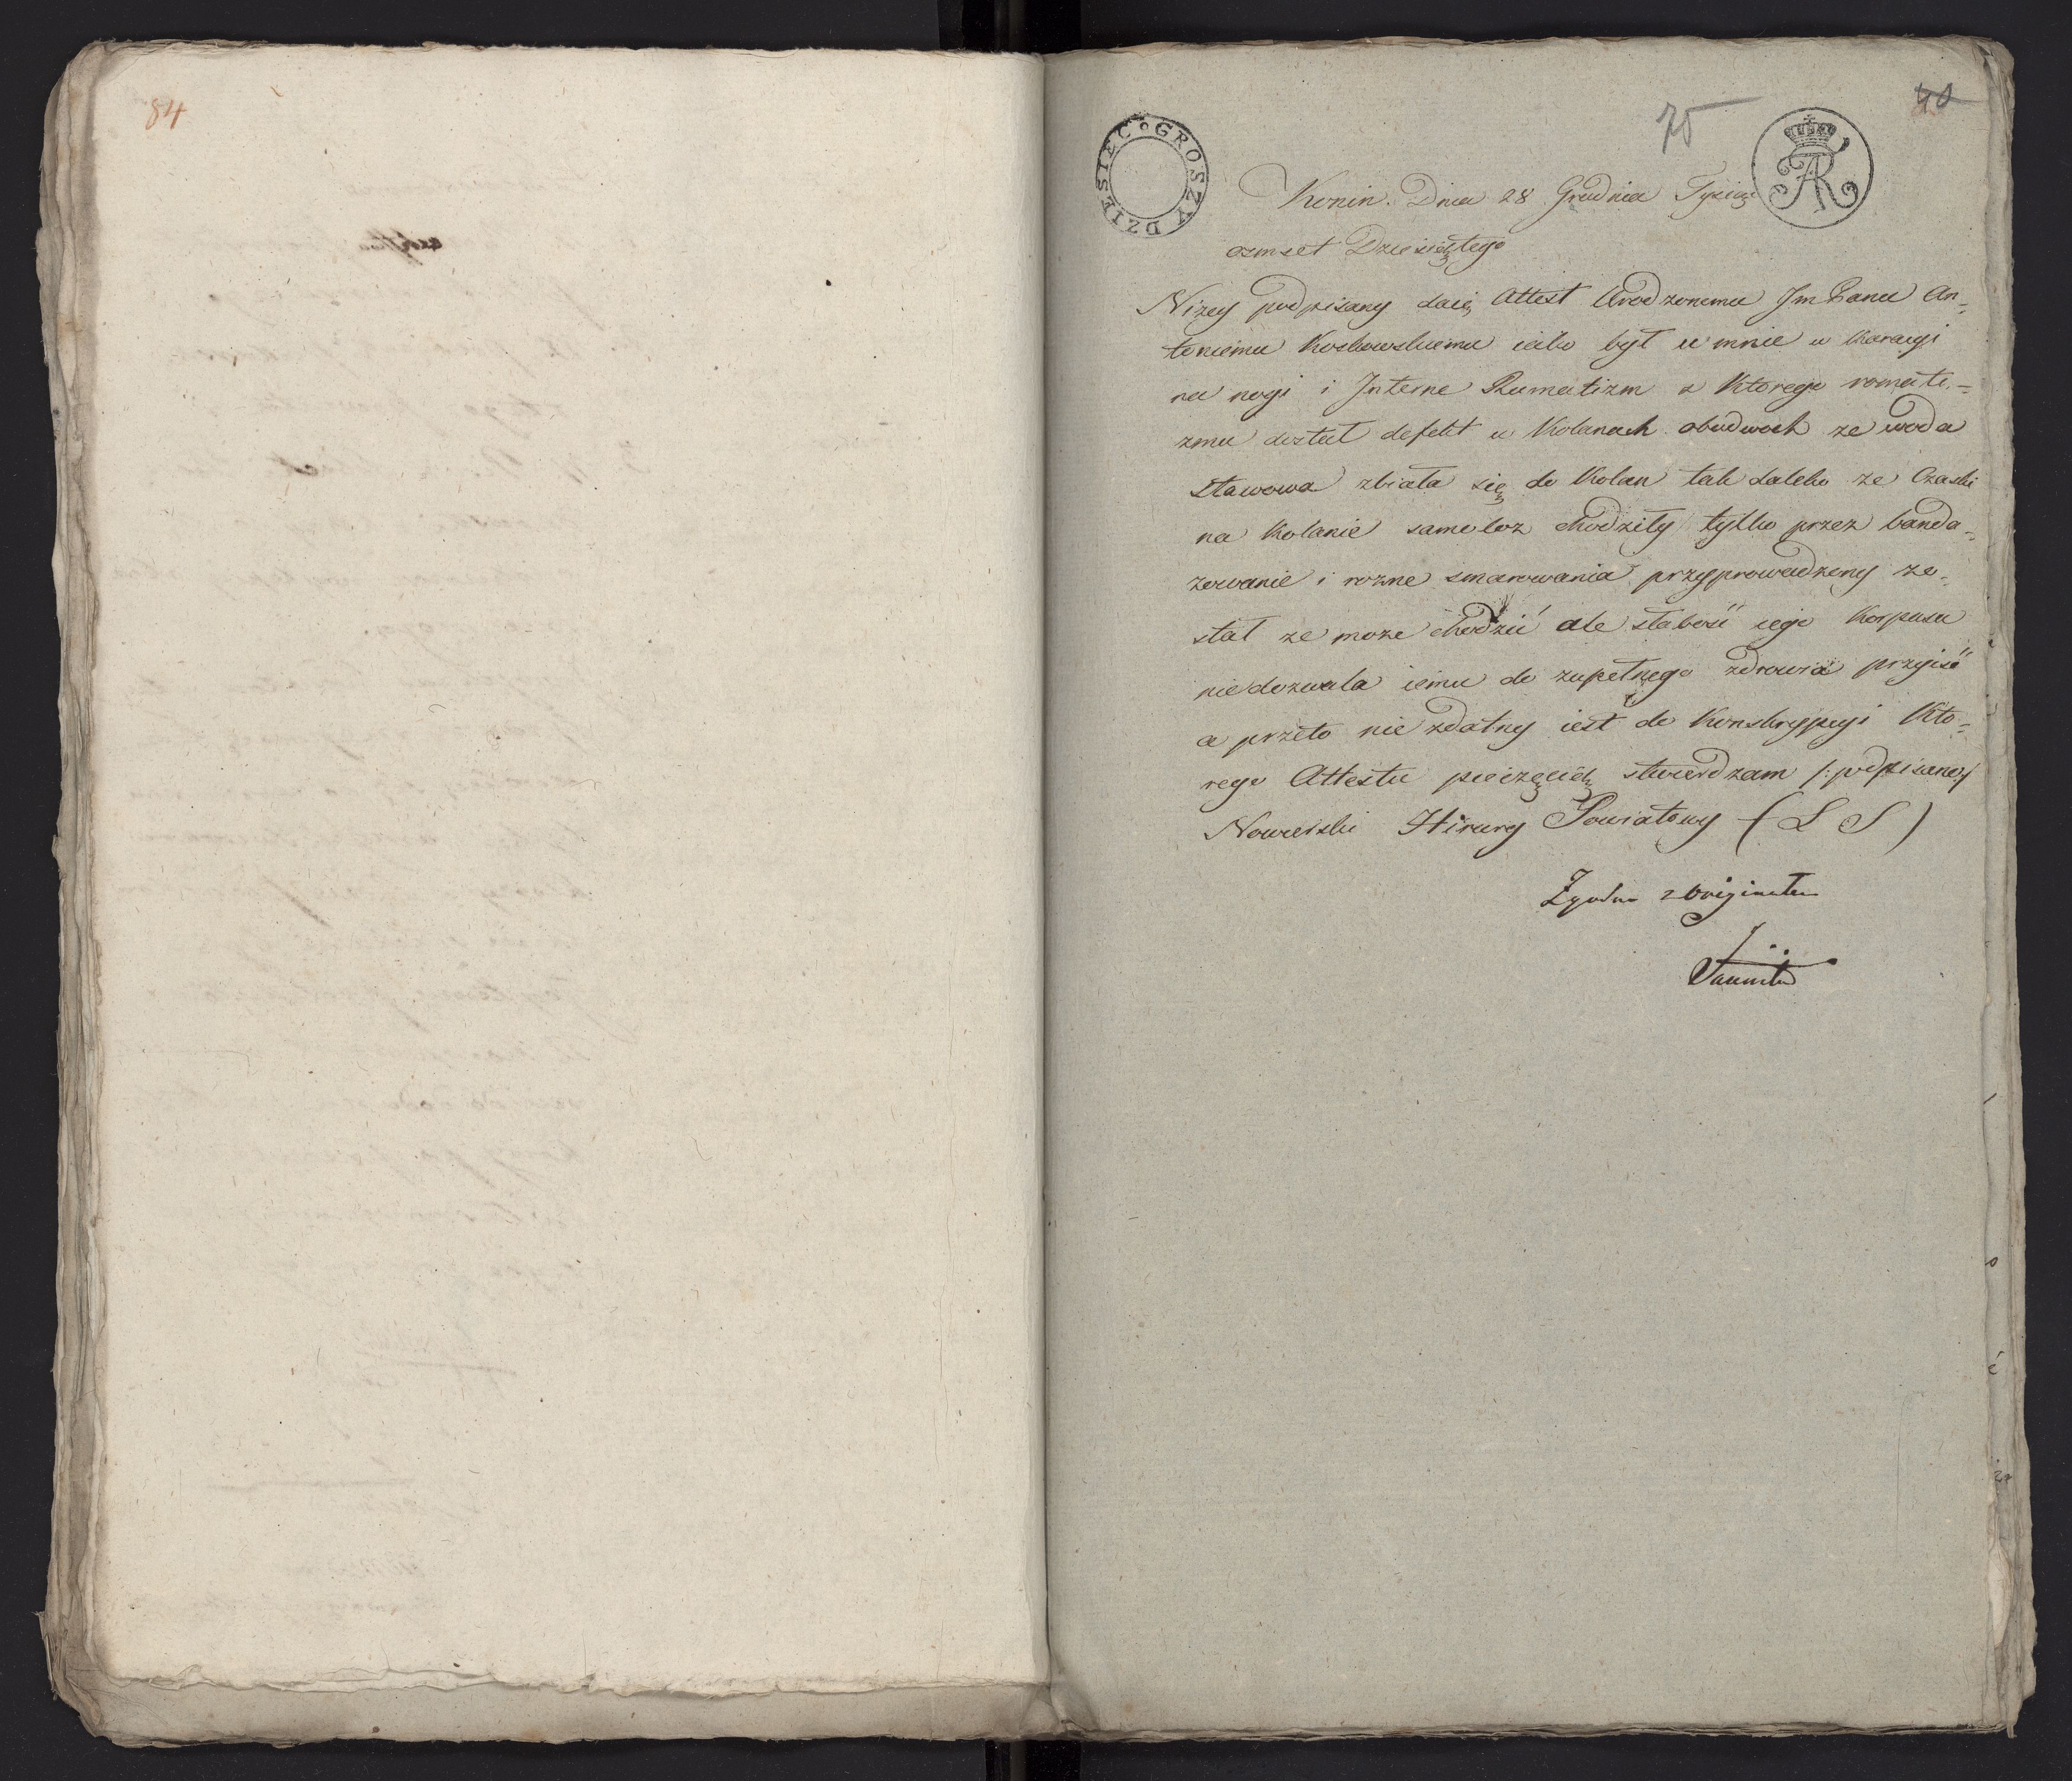 84
40
75
DZIESIĘC GROSZY
AR
Konin. Dnia 28 Grudnia Tysiąc
osmset Dziesiątego
Nizey podpisany daię Attest Urodzonemu Jm Panu An=
toniemu Koszkowskiemu iako był u mnie w Kuracyi
na nogi i Interne Rumatizm z Ktorego romati=
zmu dostał defekt w Kolanach obudwoch ze woda
stawowa zbiała się do Kolan tak daleko ze Czaski
na Kolanie samoloz chodziły tylko przez banda=
zowanie i rozne smarowania przyprowadzony zo=
stał ze moze chodzić ale słabość iego Korpusu
niedozwala iemu do zupełnego zdrowia przyiść
a przeto nie zdatny iest do Konskrypcyi Kto=
rego Attestu pieczęcią stwierdzam /:podpisano/
Nowielski Hirurg Powiatowy (L S)
Zgodno z Originałem